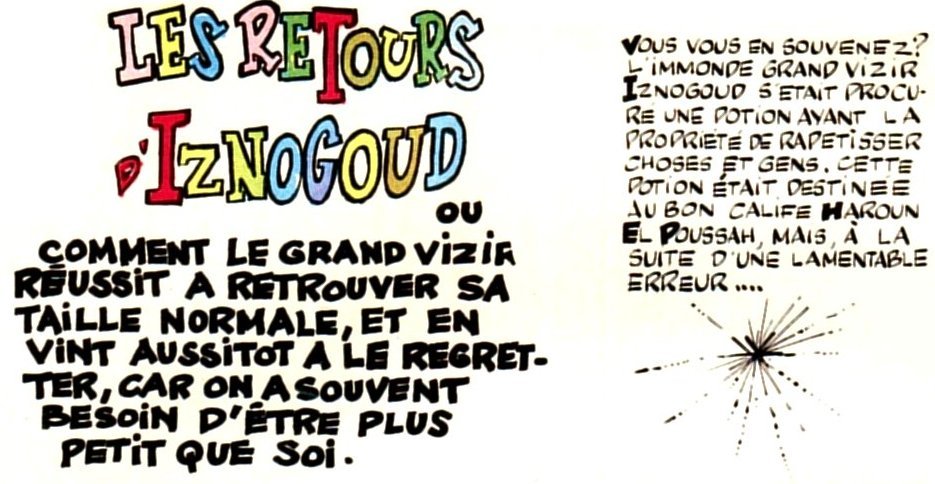 LES RETOURS
D'IZNOGOUD
OU
COMMENT LE GRAND VIZIR
RÉUSSIT A RETROUVER SA
TAILLE NORMALE, ET EN
VINT AUSSITOT A LE REGRET-
TER, CAR ON A SOUVENT
BESOIN D'ÊTRE PLUS
PETIT QUE SOI.
VOUS VOUS EN SOUVENEZ?
L'IMMONDE GRAND VIZIR
IZNOGOUD S'ETAIT PROCU-
RÉ UNE POTION AYANT LA
PROPRIÉTÉ DE RAPETISSER
CHOSES ET GENS. CETTE
POTION ÉTAIT DESTINÉE
AU BON CALIFE HAROUN
EL POUSSAH, MAIS, À LA
SUITE D'UNE LAMENTABLE
ERREUR....